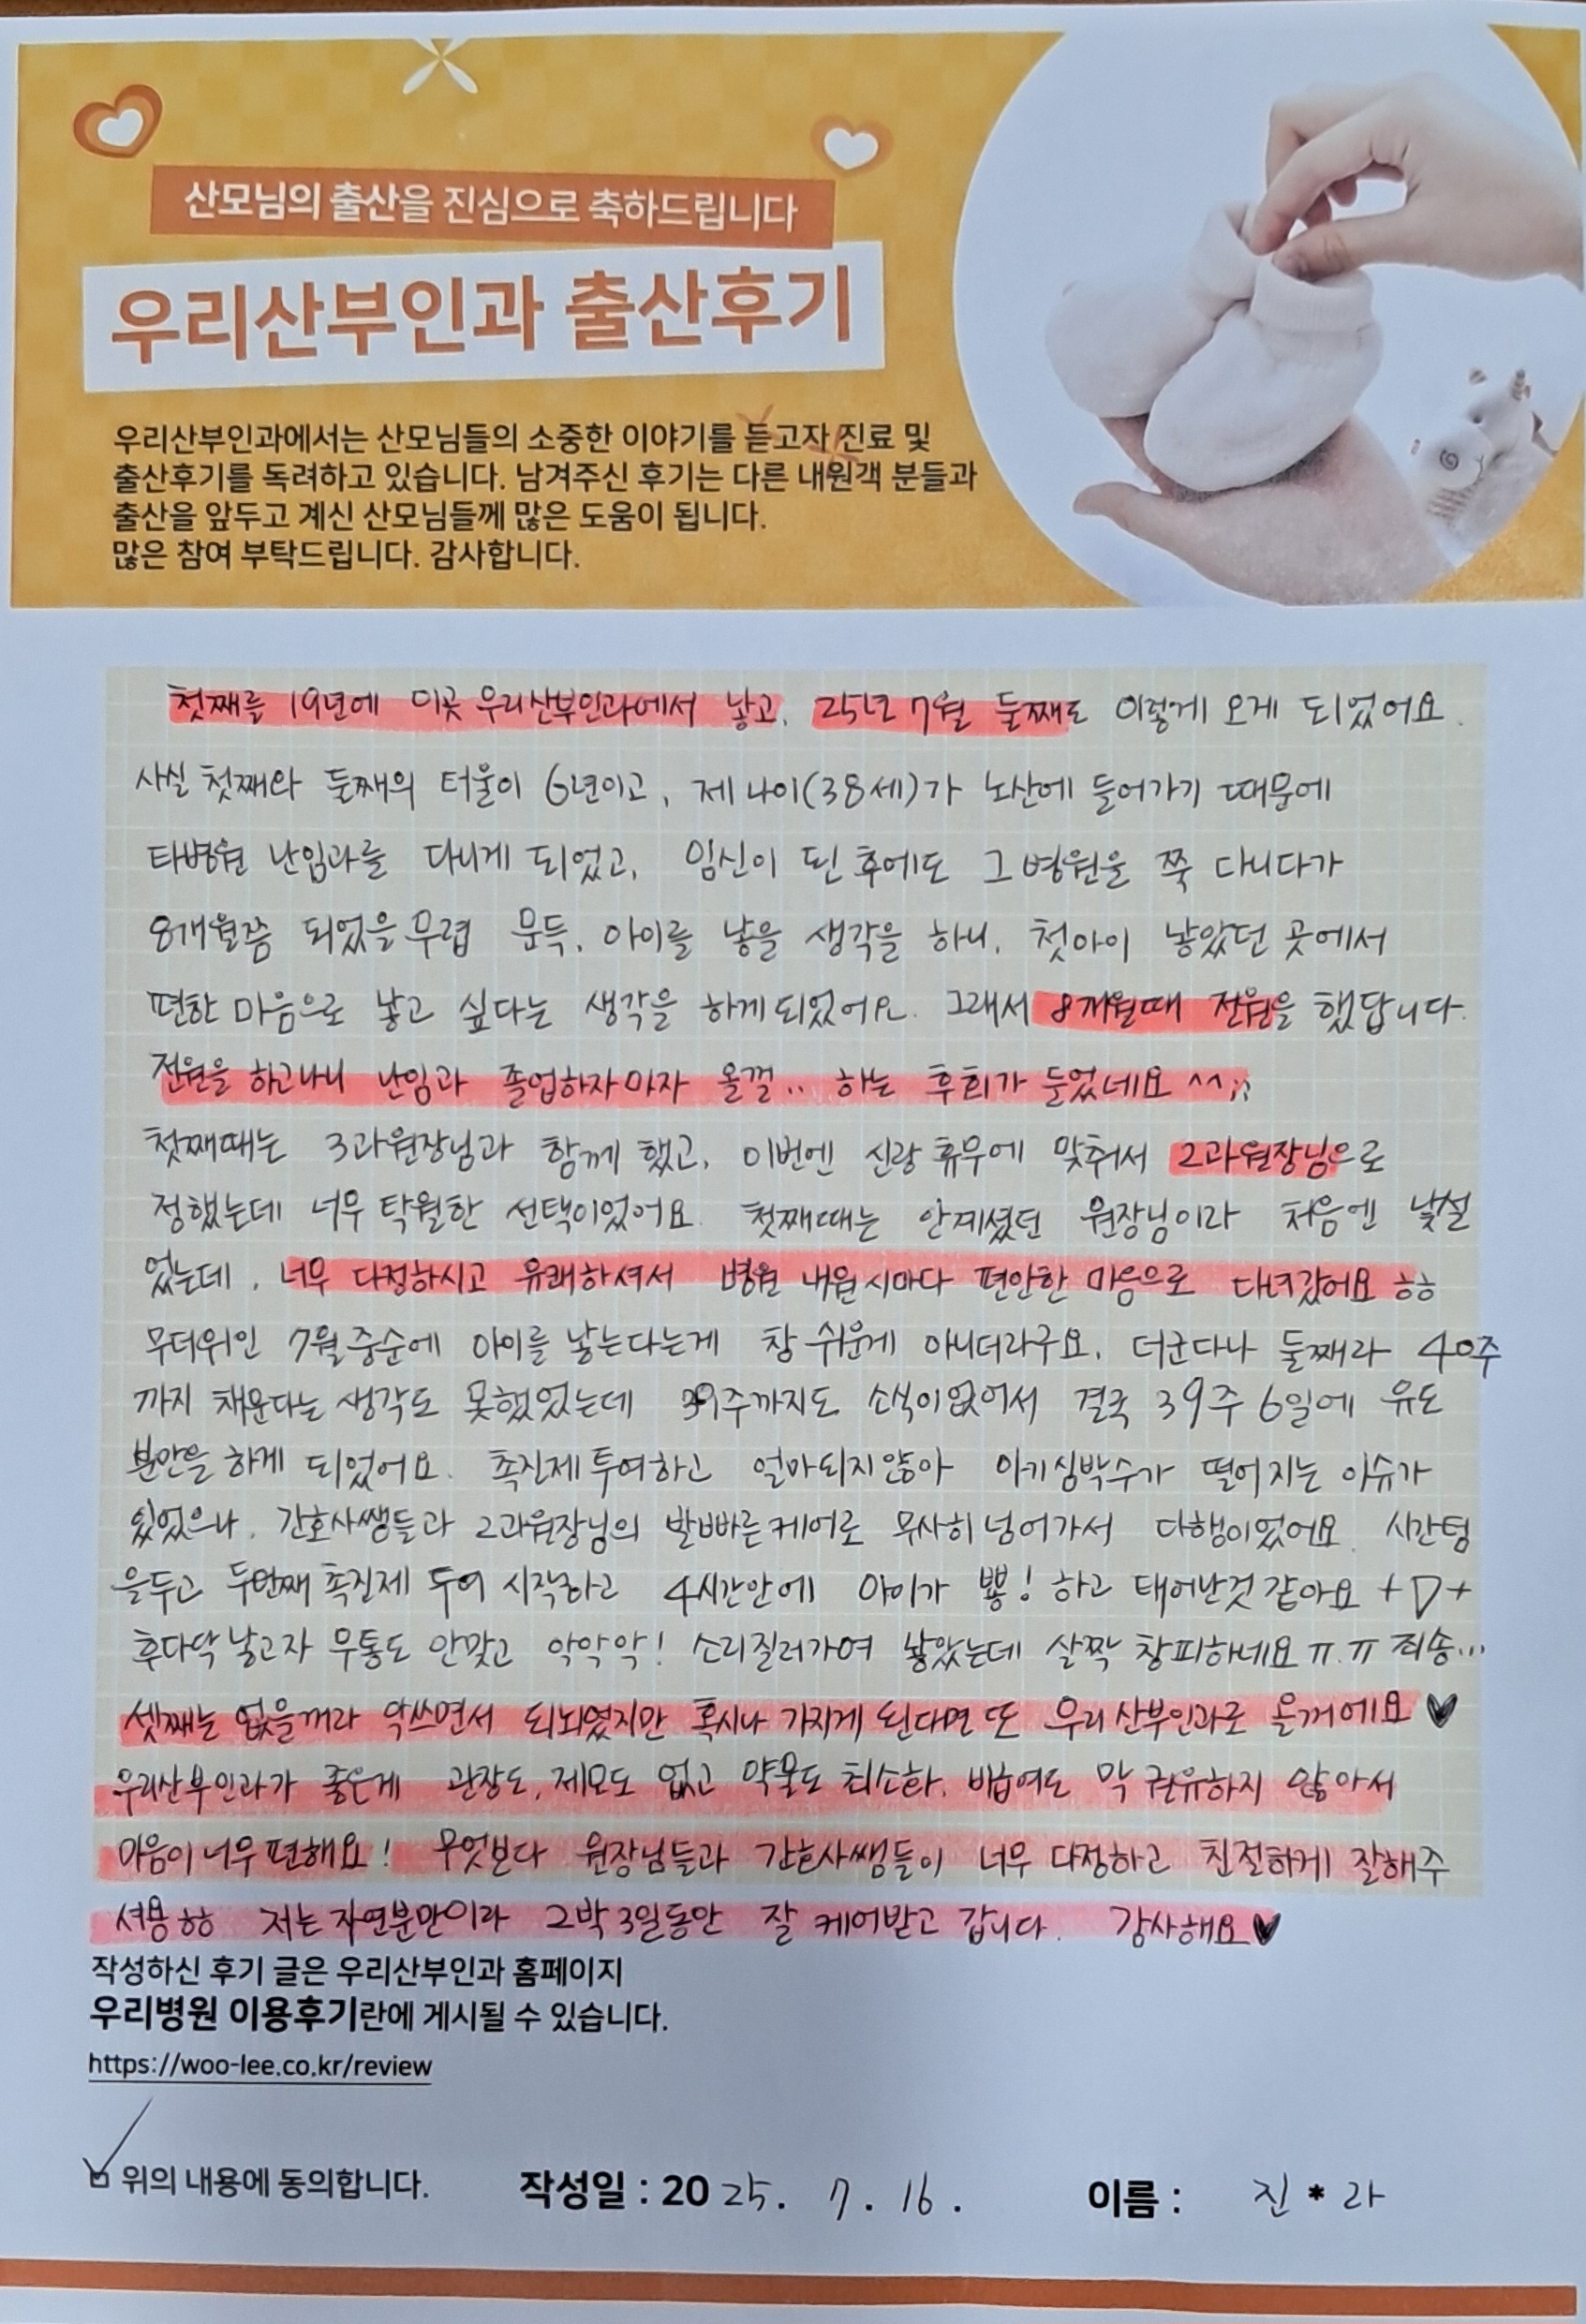 산모님의 출산을 진심으로 축하드립니다
우리산부인과 출산후기
우리산부인과에서는 산모님들의 소중한 이야기를 듣고자 진료 및
출산후기를 독려하고 있습니다. 남겨주신 후기는 다른 내원객 분들과
출산을 앞두고 계신 산모님들께 많은 도움이 됩니다.
많은 참여 부탁드립니다. 감사합니다.
첫째를 19년에 이곳 우리산부인과에서 낳고, 25년 7월 둘째도 이렇게 오게 되었어요.
사실 첫째와 둘째의 터울이 6년이고, 제 나이(38세)가 노산에 들어가기 때문에
타병원 난임과를 다니게 되었고, 임신이 된 후에도 그 병원을 쭉 다니다가
8개월쯤 되었을 무렵 문득, 아이를 낳을 생각을 하니, 첫아이 낳았던 곳에서
편한 마음으로 낳고 싶다는 생각을 하게되었어요. 그래서 8개월때 전원을 했답니다.
전원을 하고나니 난임과 졸업하자마자 올껄.. 하는 후회가 들었네요 ^^;;
첫째때는 3과원장님과 함께 했고, 이번엔 신랑 휴무에 맞춰서 2과원장님으로
정했는데 너무 탁월한 선택이었어요. 첫째때는 안계셨던 원장님이라 처음엔 낯설
었는데, 너무 다정하시고 유쾌하셔서 병원 내원시마다 편안한 마음으로 다녀갔어요 ㅎㅎ
무더위인 7월중순에 아이를 낳는다는게 참 쉬운게 아니더라구요. 더군다나 둘째라 40주
까지 채운다는 생각도 못했었는데 39주까지도 소식이없어서 결국 39주 6일에 유도
분만을 하게 되었어요. 촉진제 투여하고 얼마되지않아 아기심박수가 떨어지는 이슈가
있었으나, 간호사쌤들과 2과원장님의 발빠른 케어로 무사히 넘어가서 다행이었어요. 시간텀
을두고 두번째 촉진제 투여 시작하고 4시간안에 아이가 뿅! 하고 태어난것 같아요 +D+
후다닥 낳고자 무통도 안맞고 악악악! 소리질러가며 낳았는데 살짝 창피하네요 ㅠ.ㅠ 죄송...
셋째는 없을꺼라 악쓰면서 되뇌었지만 혹시나 가지게 된다면 또 우리산부인과로 올꺼에요 ♥
우리산부인과가 좋은게 관장도, 제모도 없고 약물도 최소화, 비급여도 막 권유하지 않아서
마음이 너무 편해요! 무엇보다 원장님들과 간호사쌤들이 너무 다정하고 친절하게 잘해주
셔용ㅎㅎ 저는 자연분만이라 2박 3일동안 잘 케어받고 갑니다. 감사해요♥
작성하신 후기 글은 우리산부인과 홈페이지
우리병원 이용후기란에 게시될 수 있습니다.
https://woo-lee.co.kr/review
위의 내용에 동의합니다. 작성일 : 2025. 7. 16. 이름 : 진*라